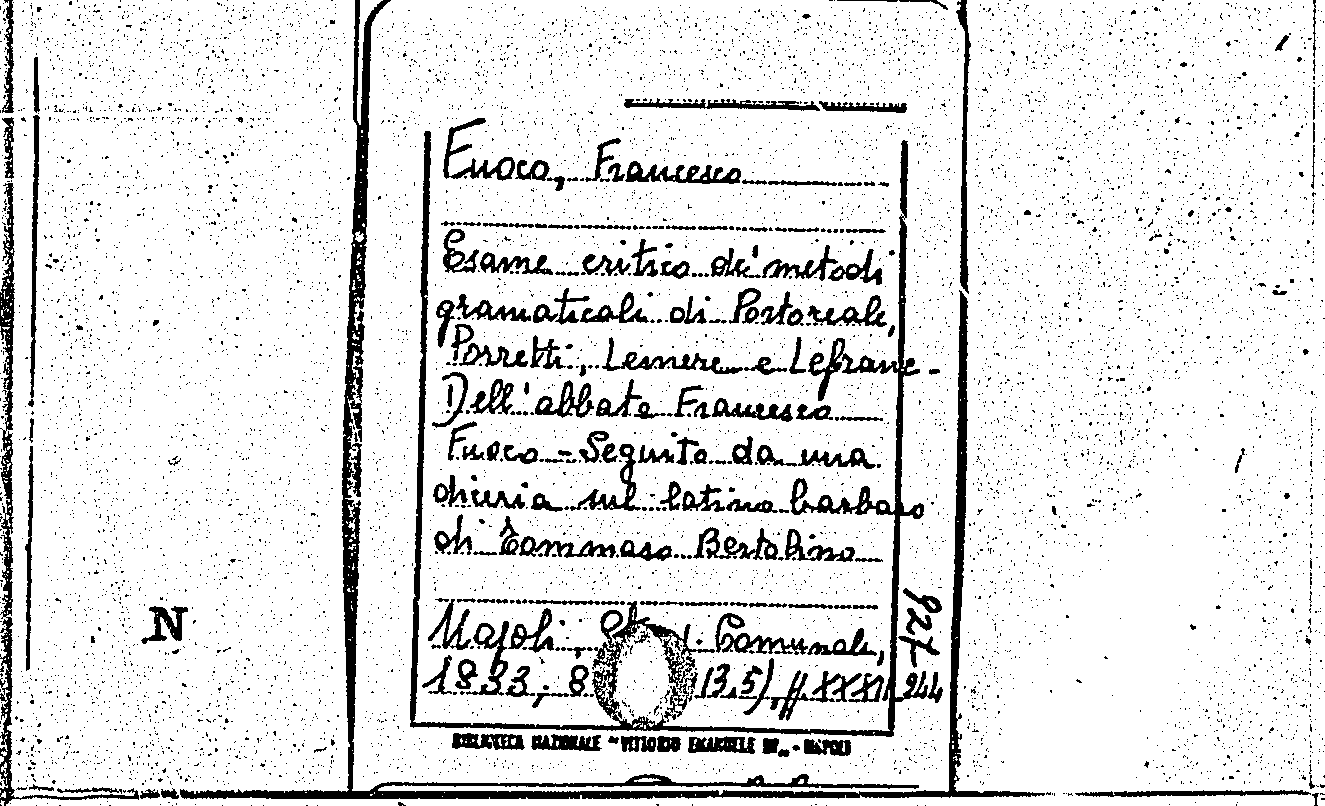 Fuoco, Francesco
Esame critico de' metodi
gramaticali di Portoreale,
Porretti, Lemere e Lefranc-
Dell'abbate Francesco
Fuoco - Seguito da una
diceria sul latino barbaro
di Tommaso Bertolino
Napoli, Comunale,
1833, 8 13,5), pp XXXII 244
927
N
BIBLIOTECA NAZIONALE "VITTORIO EMANUELE III" - NAPOLI